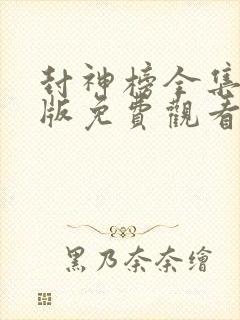 封神榜全集
版免費觀看
黑乃奈奈繪